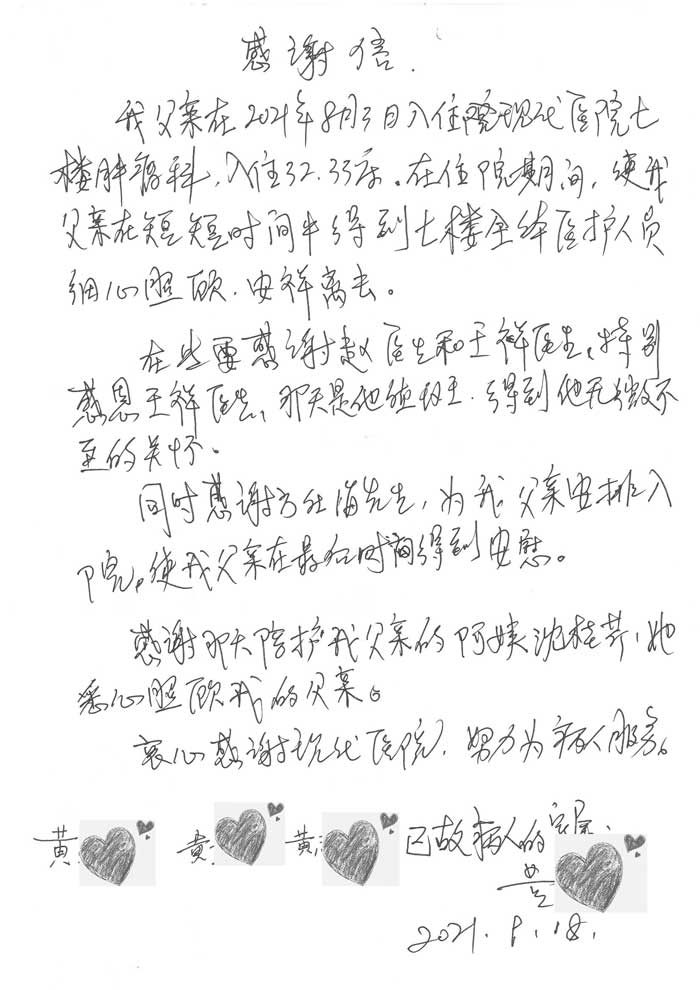 感谢信.
我父亲在2021年8月3日入住院现代医院七
楼肿瘤科,入住32.33床。在住院期间,使我
父亲在短短时间中得到七楼全体医护人员
细心照顾.安祥离去。
在些要感谢赵医生和王祥医生,特别
感恩王祥医生,那天是他值班.得到他无微不
至的关怀。
同时感谢方红海先生,为我父亲安排入
院。使我父亲在最后时间得到安慰。
感谢那天陪护我父亲的阿姨沈桂芹,她
悉心照顾我的父亲。
衷心感谢现代医院,努力为病人服务。
黄 黄 黄 已故病人的家属
黄
2021.8.18.